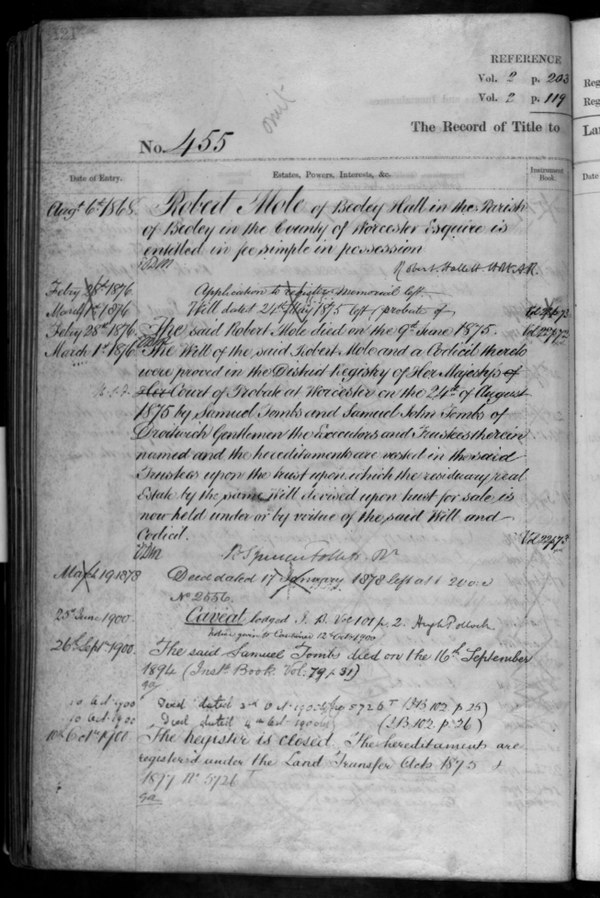 121
REFERENCE
Vol. 2 p. 203
Vol. 2 p. 119
omit
The Record of Title to
No. 455
Date of Entry.
Estates, Powers, Interests, &c.
Instrument Book.
Augt 6th 1868. Robert Mole of Beoley Hall in the Parish
of Beoley in the County of Worcester Esquire is
entitled in fee simple in possession
Robert Hallett
Febry 28th 1876 Application to register memorial left.
March 1st 1876 Will dated 24th May 1875 left (probate of
Febry 28th 1876. The said Robert Mole died on the 9th June 1875.
March 1st 1876 The Will of the said Robert Mole and a Codicil thereto
were proved in the District Registry of Her Majesty's of
Her Court of Probate at Worcester on the 24th of August
1875 by Samuel Tombs and Samuel John Tombs of
Droitwich Gentlemen the Executors and Trustees therein
named and the hereditaments are vested in the said
Trustees upon the trust upon which the residuary real
Estate by the same Will devised upon trust for sale is
now held under or by virtue of the said Will and
Codicil.
March 19 1878 Deed dated 17 January 1878 left at
No 2556.
25th June 1900. Caveat lodged I. B. Vol 101 p. 2. Hugh Pollock
Notice given to Cautioner 12 Octr 1900
26th Septr 1900. The said Samuel Tombs died on the 16th September
1894 (Inst. Book. Vol. 79 p 31)
10 Oct 1900 Deed dated 2nd Oct 1900 5726 (IB 102 p 25)
10 Oct 1900 Deed dated 4th Oct 1900 (IB 102 p 26)
10th Octr 1900. The register is closed. The hereditaments are
registered under the Land Transfer Acts 1875 &
1897 No 5726
Reg
Reg
La
Date